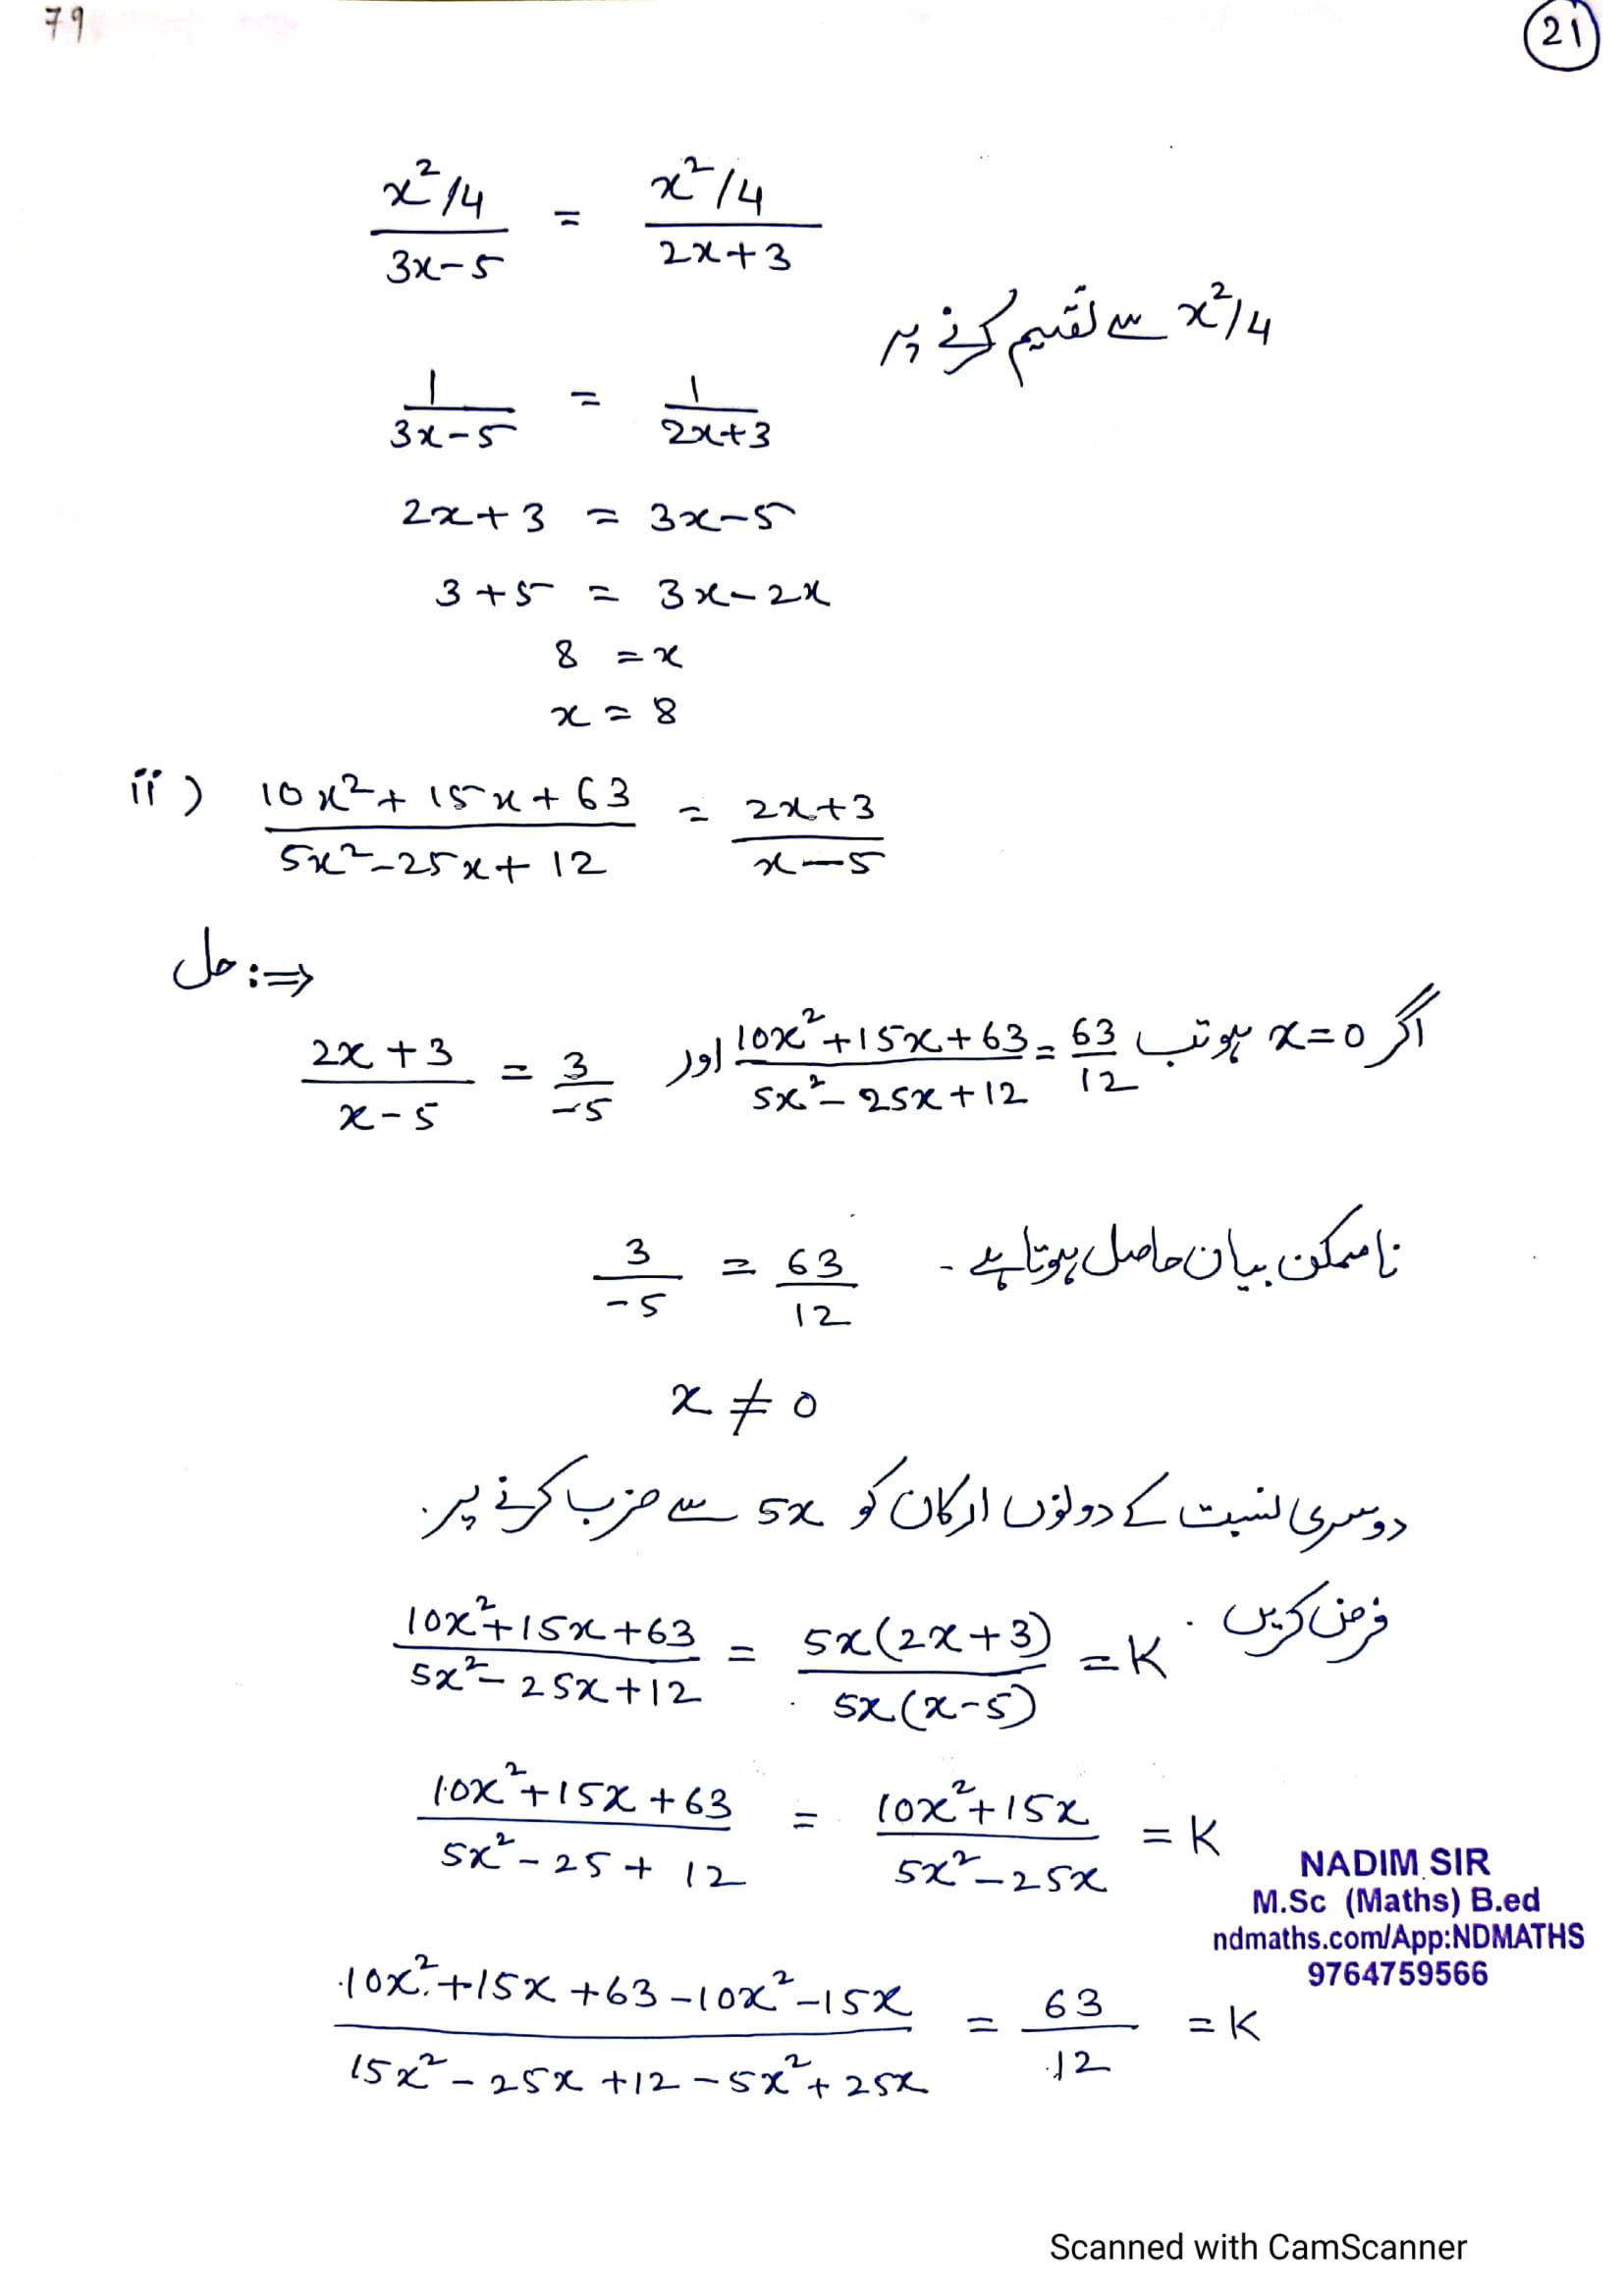 79
21
x²/4 / 3x-5 = x²/4 / 2x+3
x²/4 سے تقسیم کرنے پر
1 / 3x-5 = 1 / 2x+3
2x+3 = 3x-5
3+5 = 3x-2x
8 = x
x = 8
ii) 10x²+15x+63 / 5x²-25x+12 = 2x+3 / x-5
حل :⇒
اگر x=0 ہو تب 10x²+15x+63 / 5x²-25x+12 = 63/12 اور 2x+3 / x-5 = 3/-5
3/-5 = 63/12 ناممکن بیان حاصل ہوتا ہے -
x ≠ 0
دوسری نسبت کے دونوں ارکان کو 5x سے ضرب کرنے پر.
فرض کریں . 10x²+15x+63 / 5x²-25x+12 = 5x(2x+3) / 5x(x-5) = K
10x²+15x+63 / 5x²-25+12 = 10x²+15x / 5x²-25x = K
NADIM SIR
M.Sc (Maths) B.ed
ndmaths.com/App:NDMATHS
9764759566
10x²+15x+63-10x²-15x / 15x²-25x+12-5x²+25x = 63/12 = K
Scanned with CamScanner